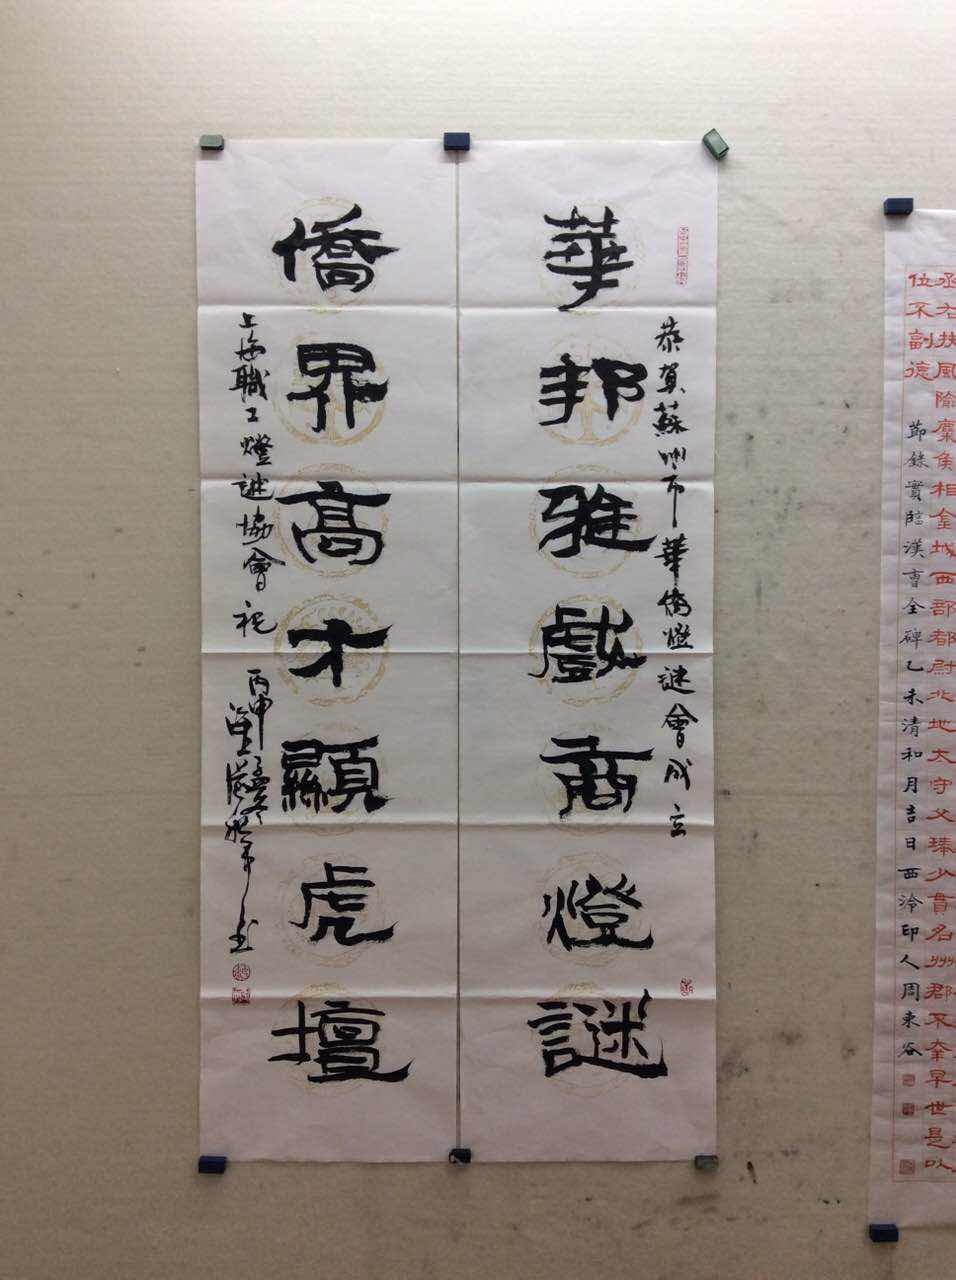 丞右扶風隃麋侯相金城西部都尉北地太守父琫少貫名州郡不幸早世是以
位不副德
節錄實臨漢曹全碑乙未清和月吉日西泠印人周東谷
恭賀蘇州市華僑燈謎會成立
華邦雅戲商燈謎
僑界高才顯虎壇
上海職工燈謎協會祝
丙申孟冬
書